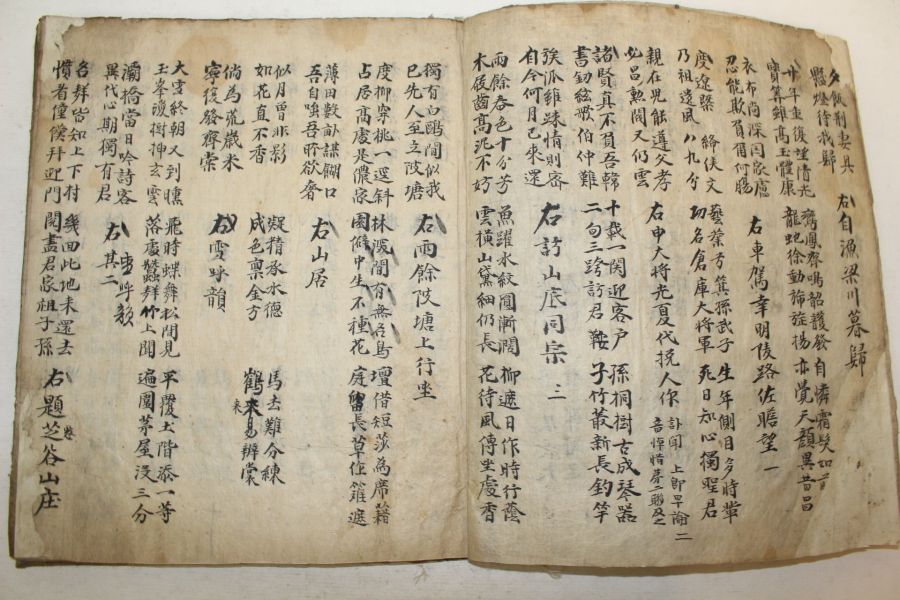 夕飯荊妻具 右自漁梁川暮歸
懸燈待我歸
廿年重復望清光 鸞鳳齊鳴韶頀發 自憐霜髮如首
寶算雖高玉體康 龍蛇徐動旆旌揚 亦覺天顔異昔昌
衣布尚深閔家慮 右車駕幸明陵路佐瞻望 一
忍能欺負爾何腸
慶遼榘 締俠文 藝業芳 孫武子 生年側目多時輩
乃祖遺風八九分 功名倉庫大將軍 死日知心獨聖君
親在兒能遵父孝 右申大將光夏代挽人作 訃聞上卽早諭 二
必昌勲閥又仍雲 音悼惜
諸賢眞不負吾韓 十載一関迎客戶 孫桐樹古成琴器
書劒絃歌伯仲難 二旬三跨訪君鞍 子竹叢新長釣竿
族派雖踈情則密 右訪山底同宗 三
自今何月已來還
雨餘春色十分芳 魚躍水紋圓漸濶 柳遮日作時行蔭
木屐齒高泥不妨 雲橫山黛細仍長 花待風傳坐處香
獨有白鷗閒似我 右雨餘陂塘上行坐
已先人至立陂塘
度柳穿桃一逕斜 林深間有無名鳥 壇借短莎為席籍
占居高處是儂家 園僻中生不種花 庭留長草任籬遮
薄田數畝謀餬口 右山居
吾自嗤吾所欲奢
似月曾非影 疑精承水德 馬去難分練
如花直不香 成色稟金方 鶴來易辨裳
倘為荒歲米 右雪呼韻
寧復發齊棠
大雲終朝又到曛 飛時蝶舞松間見 平覆土階添一等
玉峯瓊樹抻玄雲 落處蠶拜竹上聞 遍圍茅屋沒三分
灞橋當日吟詩客 右其二 雪呼韻
異代心期獨有君
各拜皆知上下村 幾回此地來還去 右題芝谷山庄
慣者僮僕拜迎門 閱盡君家祖子孫